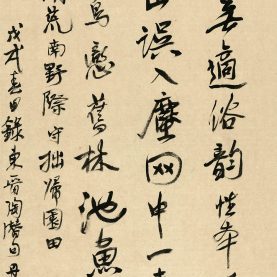 無適俗韻性本
山誤入塵网中一
鳥戀舊林池魚
荒南野際守拙歸園田
戊戌春日錄東晉陶潛句